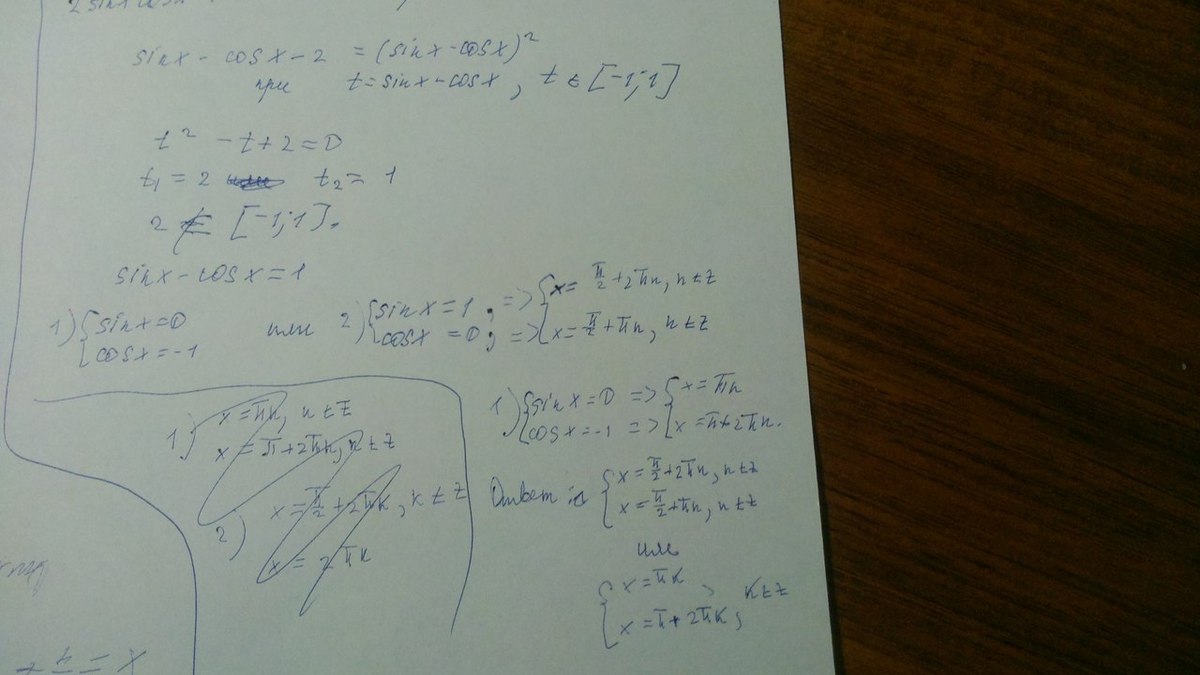 2 sinx cosx
sinx - cosx - 2 = (sinx - cosx)²
при t = sinx - cosx, t ∈ [-1; 1]
t² - t + 2 = 0
t₁ = 2 t₂ = 1
2 ∉ [-1; 1].
sinx - cosx = 1
1) { sinx = 0 или 2) { sinx = 1; => { x = π/2 + 2πn, n ∈ Z
cosx = -1 cosx = 0; => x = π/2 + πn, n ∈ Z
1) x = πn, n ∈ Z
x = π + 2πn, n ∈ Z
2) x = π/2 + 2πk, k ∈ Z
x = 2πk
1) { sinx = 0 => { x = πn
cosx = -1 => x = π + 2πn.
Ответ { x = π/2 + 2πn, n ∈ Z
x = π/2 + πn, n ∈ Z
или
{ x = πk, k ∈ Z
x = π + 2πk;
= x